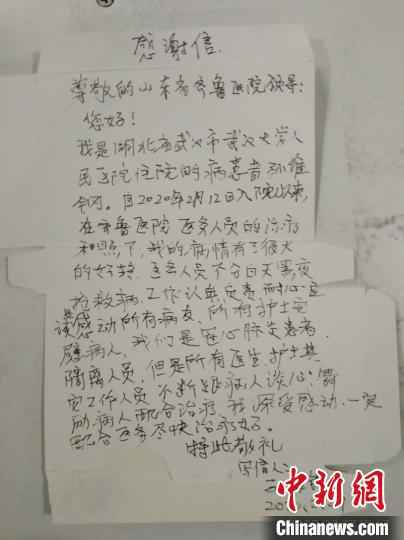 感谢信
尊敬的山东省齐鲁医院领导:
您好!
我是湖北省武汉市武汉大学人
民医院住院的病患者孙
自2020年2月12日入院以来,
在齐鲁医院医务人员的治疗
和照下,我的病情有了很大
的好转,医务人员不分白天黑夜
抢救病,工作认真负责耐心
感动所有病友,所有护士
病人,我们是冠心肺炎患者
隔离人员,但是所有医生护士其
它工作人员不断给病人谈心、鼓
励病人配合治疗,我深受感动,一定
配合医务尽快治好。
特此敬礼
写信人:
中新网
Chinanews.com